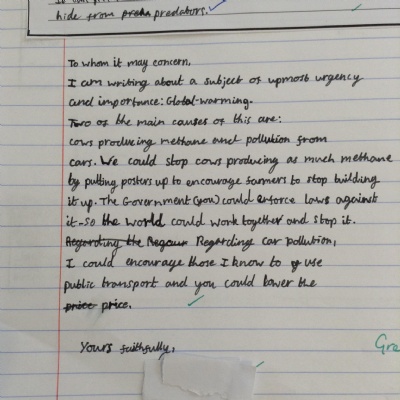 hide from predators.
To whom it may concern,
I am writing about a subject of upmost urgency
and importance: Global-warming.
Two of the main causes of this are:
cows producing methane and pollution from
cars. We could stop cows producing as much methane
by putting posters up to encourage farmers to stop building
it up. The Government (you) could enforce laws against
it-so the world could work together and stop it.
Regarding the Regour Regarding car pollution,
I could encourage those I know to use
public transport and you could lower the
price price.
Yours faithfully,
Gre